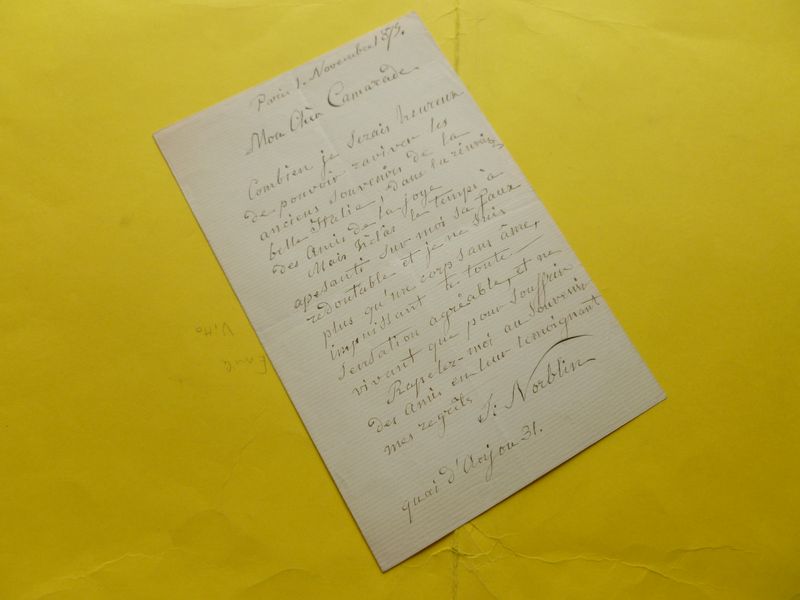 Paris 1. Novembre 1875.
Mon Cher Camarade.
Combien je serais heureux
de pouvoir raviver les
anciens souvenirs de la
belle Italie, dans la réunion
des Amis de la joye
Mais hélas le temps à
apesanti sur moi sa faux
redoutable et je ne suis
plus qu'un corp sans âme,
impuissant à toute
sensation agréable, et ne
vivant que pour souffrir
Rapelez-moi au souvenir
des Amis en leur temoignant
mes regrêts
S: Norblin
quai d'Anjou 31.